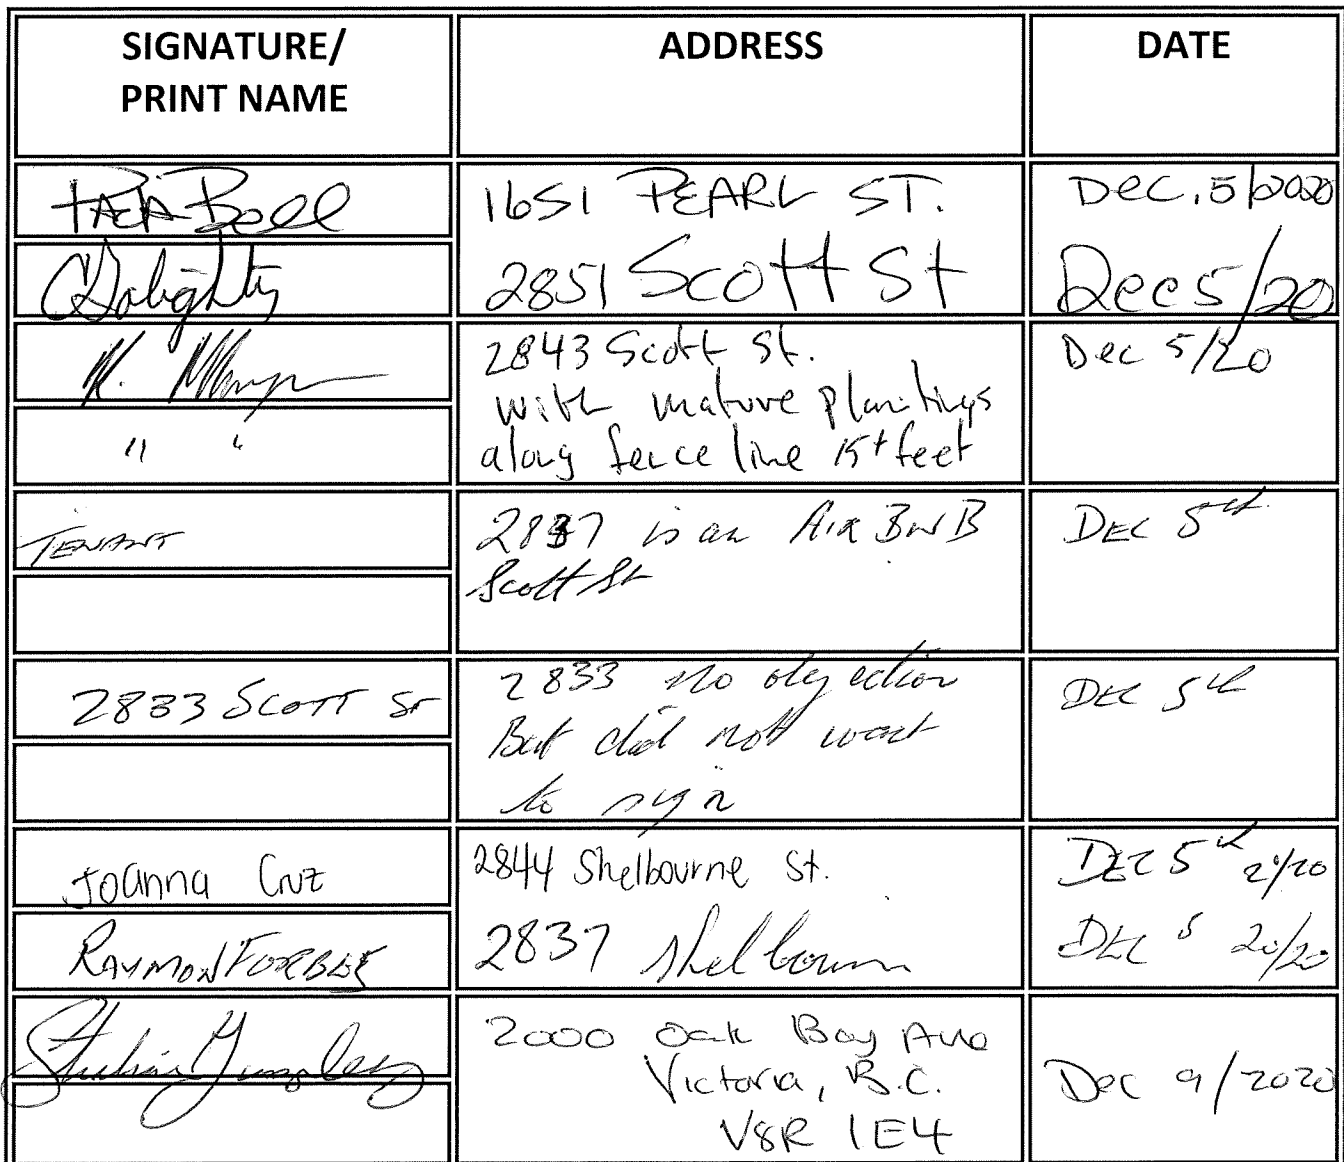 SIGNATURE/
PRINT NAME
ADDRESS
DATE
Bell
1651 PEARL ST.
Dec. 5/2020
Golightly
2851 Scott St
Dec 5/20
K.
2843 Scott St.
with mature plantings
along fence line 15+ feet
Dec 5/20
" "
TENANT
2837 is an Air BnB
Scott St
DEC 5th
2833 SCOTT ST
2833 no objection
But did not want
to sign
DEC 5th
Joanna Cruz
2844 Shelbourne St.
DEC 5th 2/20
RAYMON FORBES
2837 Shelbourn
DEC 5 20/20
2000 Oak Bay Ave
Victoria, B.C.
V8R 1E4
Dec 9/2020